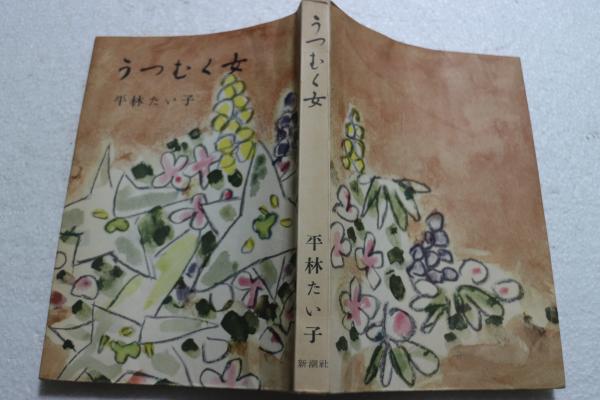 うつむく女
平林たい子
うつむく女
平林たい子
新潮社